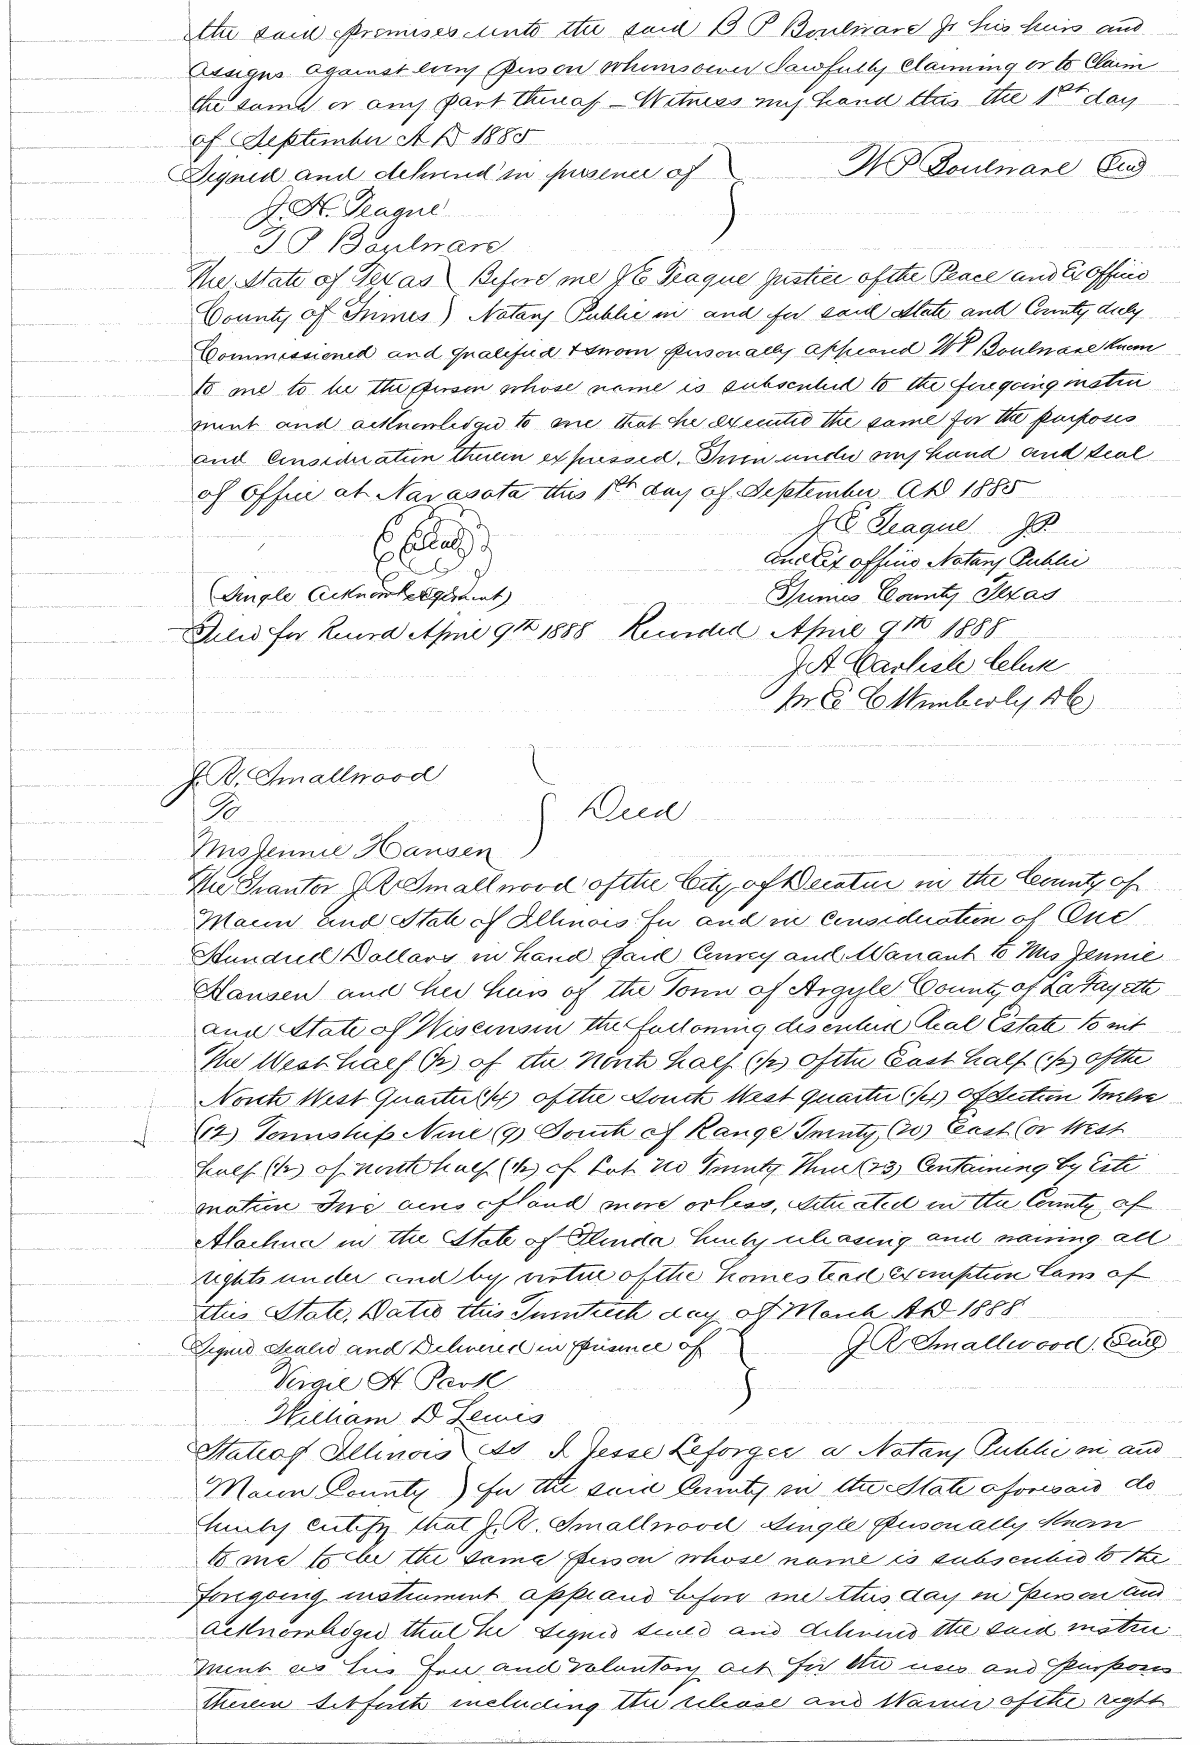 the said premises unto the said B P Boulware Jr his heirs and
assigns against every person whomsoever Lawfully Claiming or to Claim
the same or any part thereof - Witness my hand this the 1st day
of September A D 1885
Signed and delivered in presence of W P Boulware Seal
J. H. Teague
T P Boulware
The State of Texas ) Before me J E Teague Justice of the Peace and Ex Officio
County of Grimes ) Notary Public in and for said State and County duly
Commissioned and qualified & sworn personally appeared W P Boulware known
to me to be the person whose name is subscribed to the foregoing instru
ment and acknowledged to me that he executed the same for the purposes
and consideration therein expressed. Given under my hand and seal
of Office at Navasota this 1st day of September AD 1885
J E Teague J.P.
Seal
and Ex officio Notary Public
(Single Acknowledgement) Grimes County Texas
Filed for Record April 9th 1888 Recorded April 9th 1888
J A Carlisle Clerk
Wimberly DC
J. R. Smallwood
To ) Deed
Mrs Jennie Hansen
The Grantor J R Smallwood of the City of Decatur in the County of
Macon and State of Illinois for and in consideration of One
Hundred Dollars in hand paid Convey and Warrant to Mrs Jennie
Hansen and her heirs of the Town of Argyle County of La Fayette
and State of Wisconsin the following described Real Estate to wit
The West half (1/2) of the North half (1/2) of the East half (1/2) of the
North West Quarter (1/4) of the South West quarter (1/4) of Section Twelve
(12) Township Nine (9) South of Range Twenty (20) East (or West
half (1/2) of north half (1/2) of Lot No Twenty Three (23) Containing by Esti
mation Five acres of land more or less, situated in the County of
Alachua in the State of Florida hereby releasing and waiving all
rights under and by virtue of the homestead exemption laws of
this State, Dated this Twentieth day of March AD 1888
Signed Sealed and Delivered in presence of J R Smallwood. Seal
Vergie H Park
William D Lewis
State of Illinois ) SS I Jesse Leforgee a Notary Public in and
Macon County ) for the said County in the State aforesaid do
hereby certify that J. R. Smallwood Single personally known
to me to be the same person whose name is subscribed to the
foregoing instrument appeared before me this day in person and
acknowledged that he signed sealed and delivered the said instru
ment as his free and voluntary act for the uses and purposes
therein set forth including the release and Waiver of the right